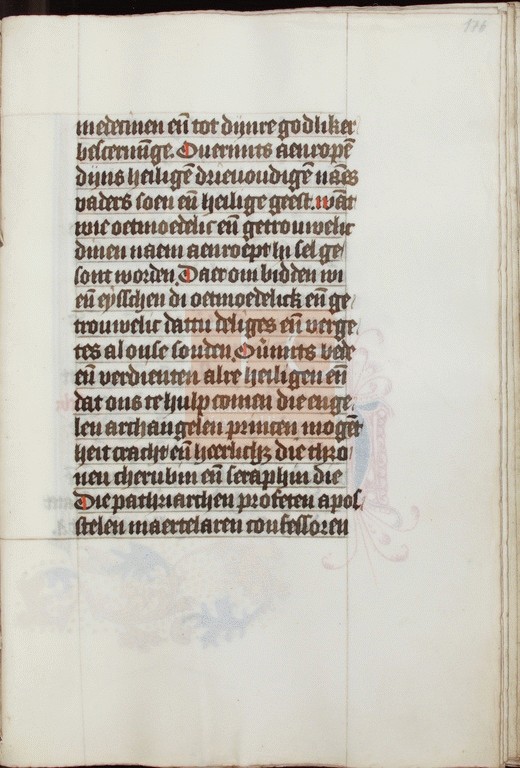 176
medecinen eñ tot dijnre godliker
bescermīge. Ouermits aenropē
dijns heiligē drieuoudigē naēs
vaders soen eñ heilige geest. wāt
wie oetmoedelic eñ getrouwelic
dinen naem aenroept hi sel ge
sont worden. Daer om bidden wi
eñ eysschen di oetmoedelick eñ ge
trouwelic dattu deliges eñ verge
tes al onse sonden. Oūmits bede
eñ verdienten alre heiligen eñ
dat ons te hulp comen die enge
len archangelen princen mogēt
heit cracht eñ heerlichz die thro
nen cherubin eñ seraphin die
Die pathriarchen profeten apos
stelen maertelaren confessoren